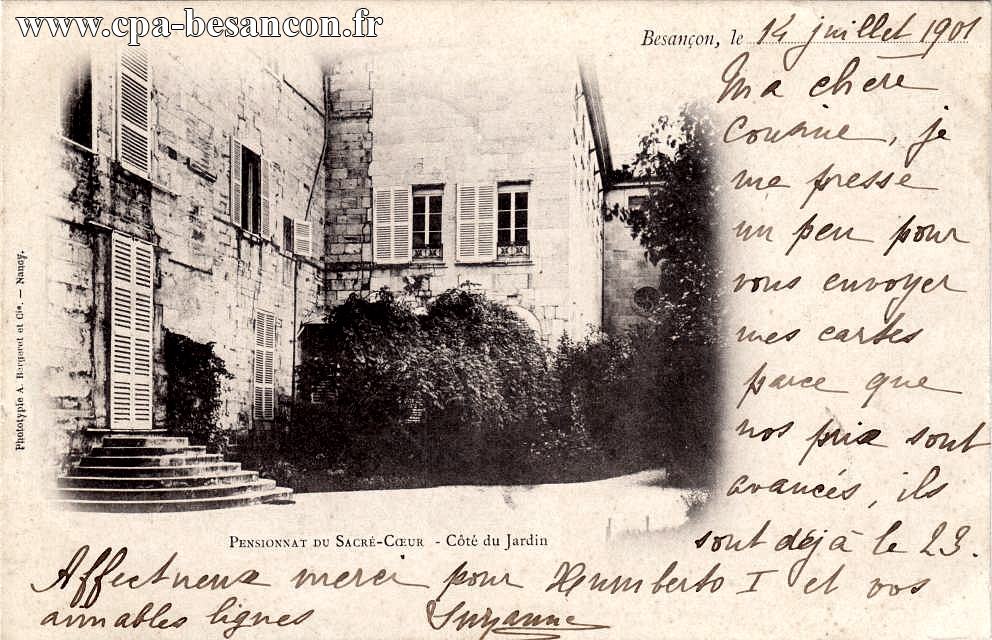 www.cpa-besancon.fr
Besançon, le 14 juillet 1901
Ma chère
cousine, je
me presse
un peu pour
vous envoyer
mes cartes
parce que
nos prix sont
avancés, ils
sont déjà le 23.
Affectueux merci pour Humberto I et vos
aimables lignes Suzanne
PENSIONNAT DU SACRÉ-CŒUR - Côté du Jardin
Phototypie A. Bergeret et Cie. — Nancy.